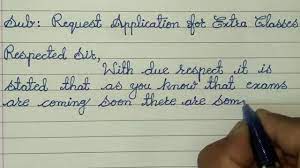 Sub: Request Application for Extra Classes
Respected Sir,
With due respect it is
stated that as you know that exams
are coming soon there are som